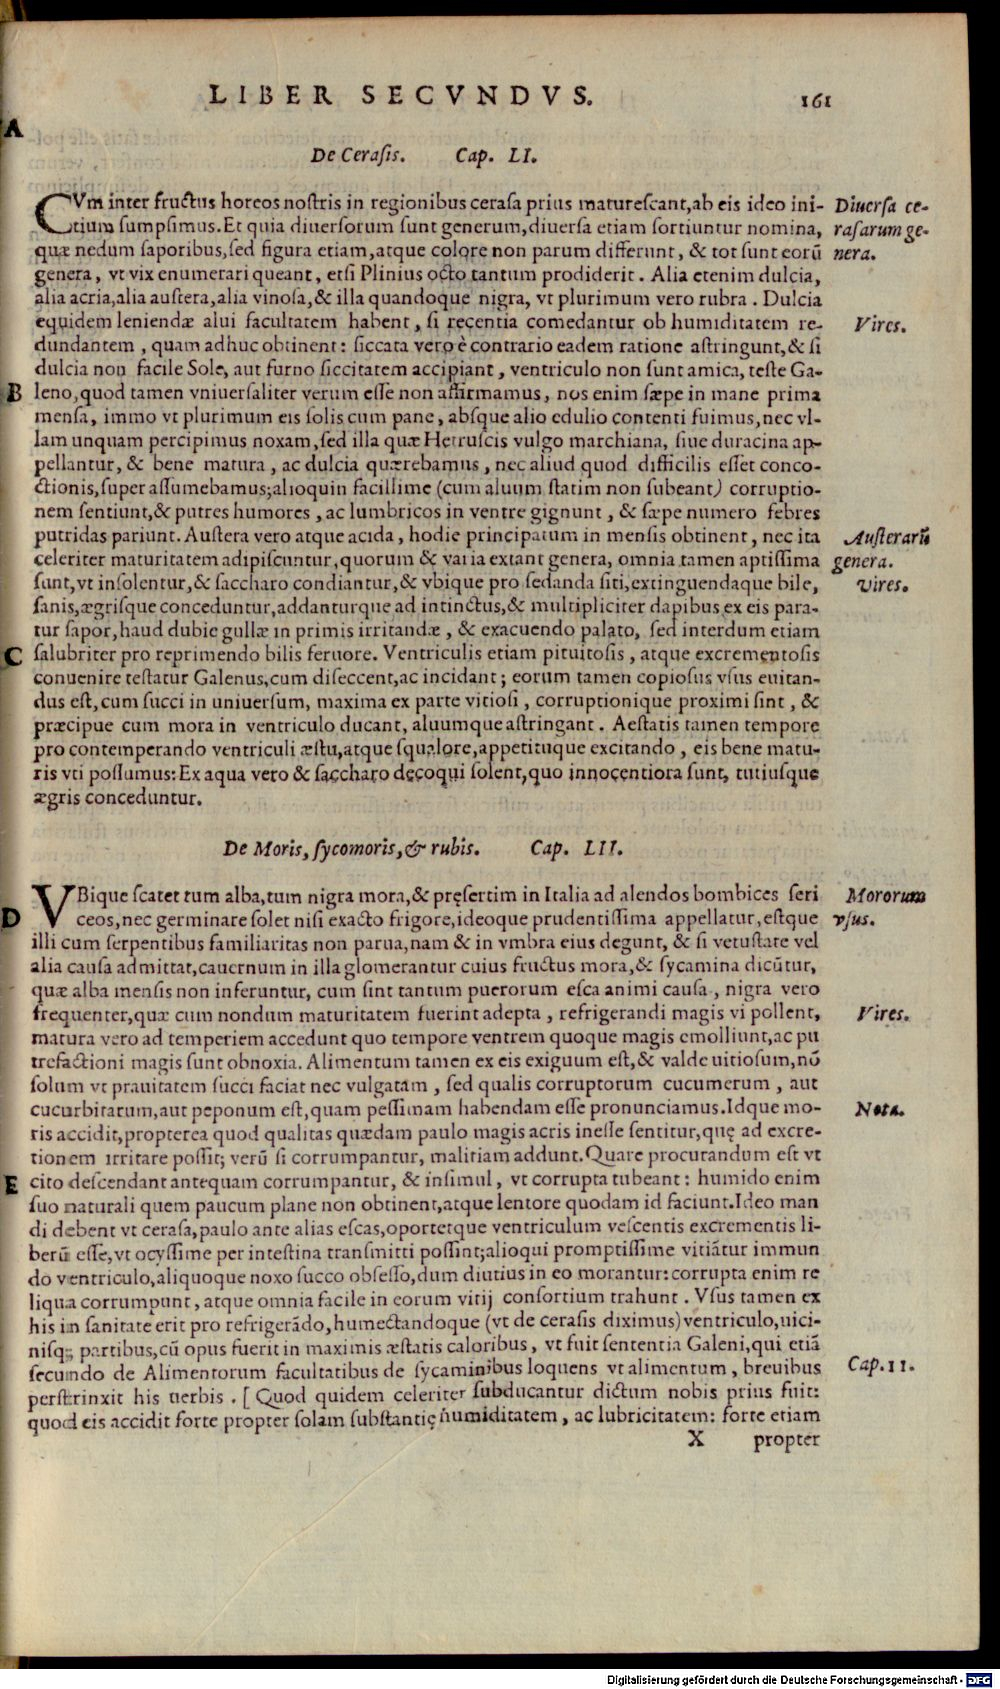 LIBER SECVNDVS. 161
A
De Cerasis. Cap. LI.
CVm inter fructus horeos nostris in regionibus cerasa prius maturescant, ab eis ideo ini-
tium sumpsimus. Et quia diuersorum sunt generum, diuersa etiam sortiuntur nomina,
quæ nedum saporibus, sed figura etiam, atque colore non parum differunt, & tot sunt eorũ
genera, vt vix enumerari queant, etsi Plinius octo tantum prodiderit. Alia etenim dulcia,
alia acria, alia austera, alia vinosa, & illa quandoque nigra, vt plurimum vero rubra. Dulcia
equidem leniendæ alui facultatem habent, si recentia comedantur ob humiditatem re-
dundantem, quam adhuc obtinent: siccata vero è contrario eadem ratione astringunt, & si
dulcia non facile Sole, aut furno siccitatem accipiant, ventriculo non sunt amica, teste Ga-
leno, quod tamen vniuersaliter verum esse non affirmamus, nos enim sæpe in mane prima
mensa, immo vt plurimum eis solis cum pane, absque alio edulio contenti fuimus, nec vl-
lam unquam percipimus noxam, sed illa quæ Hetruscis vulgo marchiana, siue duracina ap-
pellantur, & bene matura, ac dulcia quærebamus, nec aliud quod difficilis esset conco-
ctionis, super assumebamus; alioquin facillime (cum aluum statim non subeant) corruptio-
nem sentiunt, & putres humores, ac lumbricos in ventre gignunt, & sæpe numero febres
putridas pariunt. Austera vero atque acida, hodie principatum in mensis obtinent, nec ita
celeriter maturitatem adipiscuntur, quorum & varia extant genera, omnia tamen aptissima
sunt, vt insolentur, & saccharo condiantur, & vbique pro sedanda siti, extinguendaque bile,
sanis, ægrisque conceduntur, addanturque ad intinctus, & multipliciter dapibus ex eis para-
tur sapor, haud dubie gullæ in primis irritandæ, & exacuendo palato, sed interdum etiam
salubriter pro reprimendo bilis feruore. Ventriculis etiam pituitosis, atque excrementosis
conuenire testatur Galenus, cum diseccent, ac incidant; eorum tamen copiosus vsus euitan-
dus est, cum succi in uniuersum, maxima ex parte vitiosi, corruptionique proximi sint, &
præcipue cum mora in ventriculo ducant, aluumque astringant. Aestatis tamen tempore
pro contemperando ventriculi æstu, atque squalore, appetituque excitando, eis bene matu-
ris vti possumus: Ex aqua vero & saccharo decoqui solent, quo innocentiora sunt, tutiusque
ægris conceduntur.
Diuersa ce-
rasarum ge-
nera.
Vires.
B
Austerarũ
genera.
vires.
C
De Moris, sycomoris, & rubis. Cap. LII.
VBique scatet tum alba, tum nigra mora, & pręsertim in Italia ad alendos bombices seri
ceos, nec germinare solet nisi exacto frigore, ideoque prudentissima appellatur, estque
illi cum serpentibus familiaritas non parua, nam & in vmbra eius degunt, & si vetustate vel
alia causa admittat, cauernum in illa glomerantur cuius fructus mora, & sycamina dicũtur,
quæ alba mensis non inferuntur, cum sint tantum puerorum esca animi causa, nigra vero
frequenter, quæ cum nondum maturitatem fuerint adepta, refrigerandi magis vi pollent,
matura vero ad temperiem accedunt quo tempore ventrem quoque magis emolliunt, ac pu
trefactioni magis sunt obnoxia. Alimentum tamen ex eis exiguum est, & valde uitiosum, nõ
solum vt prauitatem succi faciat nec vulgatam, sed qualis corruptorum cucumerum, aut
cucurbitarum, aut peponum est, quam pessimam habendam esse pronunciamus. Idque mo-
ris accidit, propterea quod qualitas quædam paulo magis acris inesse sentitur, quę ad excre-
tionem irritare possit; verũ si corrumpantur, malitiam addunt. Quare procurandum est vt
cito descendant antequam corrumpantur, & insimul, vt corrupta tubeant: humido enim
suo naturali quem paucum plane non obtinent, atque lentore quodam id faciunt. Ideo man
di debent vt cerasa, paulo ante alias escas, oportetque ventriculum vescentis excrementis li-
berũ esse, vt ocyssime per intestina transmitti possint; alioqui promptissime vitiãtur immun
do ventriculo, aliquoque noxo succo obsesso, dum diutius in eo morantur: corrupta enim re
liqua corrumpunt, atque omnia facile in eorum vitij consortium trahunt. Vsus tamen ex
his in sanitate erit pro refrigerãdo, humectandoque (vt de cerasis diximus) ventriculo, uici-
nisq; partibus, cũ opus fuerit in maximis æstatis caloribus, vt fuit sententia Galeni, qui etiã
secundo de Alimentorum facultatibus de sycaminibus loquens vt alimentum, breuibus
perstrinxit his uerbis. [Quod quidem celeriter subducantur dictum nobis prius fuit:
quod eis accidit forte propter solam substantię humiditatem, ac lubricitatem: forte etiam
Mororum
vsus.
D
Vires.
Nota.
E
Cap. 11.
X propter
Digitalisierung gefördert durch die Deutsche Forschungsgemeinschaft - DFG